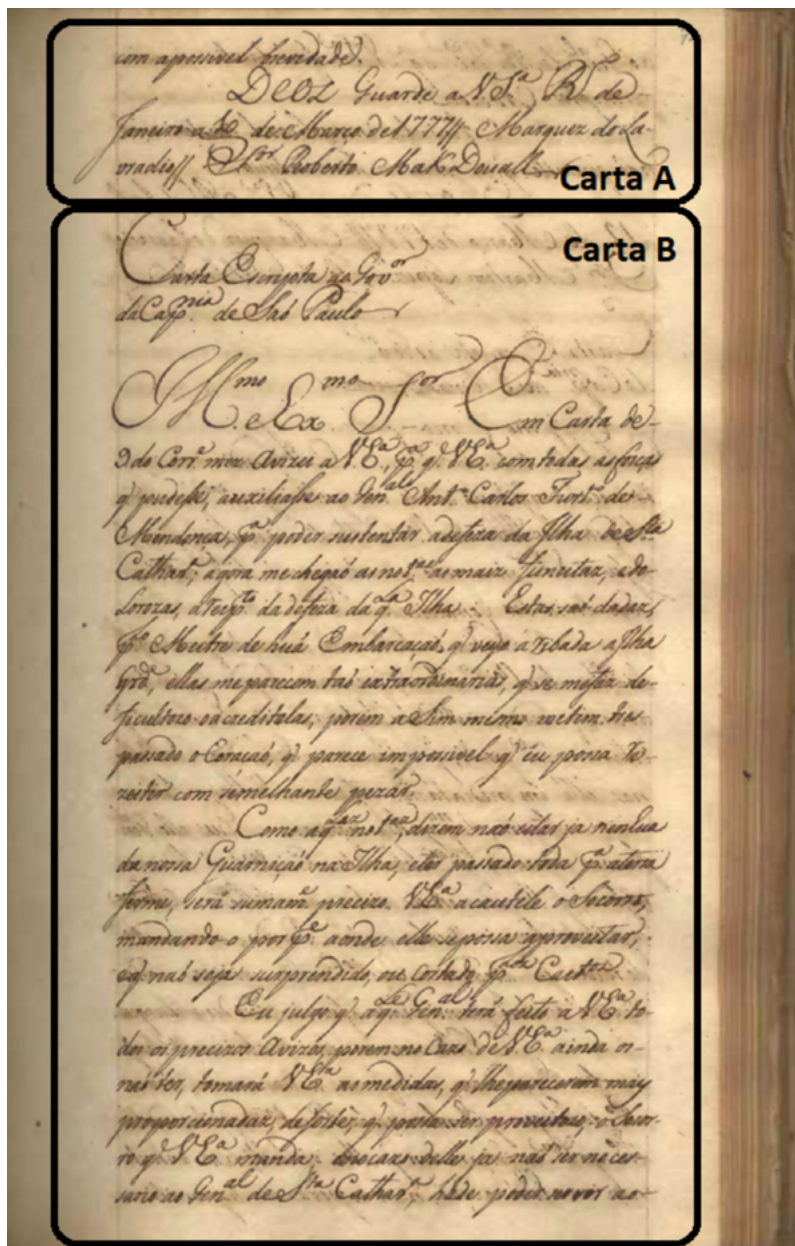 com apossivel brevidade.
DEOS Guarde a V S.ª R.º de
Janeiro a de Março de 1777// Marquez do La-
vradio// S.ºr Roberto Mak Douall
Carta A
Carta B
Carta Escripta ao Gov.ºr
da Cap.nia de Saó Paulo
Ill.mo e Ex.mo S.or Em Carta de
9 do Corr.e mez Avizei a V E.ª, p.ª q' V E.ª com todas as forças
q' pudesse, auxiliasse ao Gen.al Ant.º Carlos Furt.º de
Mendonça, p.ª poder sustentar adefeza da Ilha de S.ta
Cathar.ª, agora me chegaó as not.as as mais funestas, e do-
lorozas, a resp.to da defeza da q.la Ilha. Estas saó dadas,
p.º Mestre de huá Embarcaçaó, q' veyo a Ribada a Ilha
Grd.e, ellas me parecem taó extraordinarias, q' se me faz de-
ficultozo o acreditalas; porem aSim mesmo me tem tres
passado o Coraçaó, q' parece impossivel q' eu possa Re-
zestir com semelhante pezar.
Como aq.las not.as, dizem naó estar ja nenhua
da nossa Guarniçaó na Ilha, eter passado toda p.ª aterra
firme, será sumam.e precizo V E.ª acautele o Socorro,
mandando o por p.e aonde elle se possa aproveitar,
eq' naó seja surprendido, ou Cortado
Eu julgo q' aq.le Gen.al terá feito a V E.ª to-
dos os precizos Avizos, porem no Cazo de V E.ª ainda os
naó ter, tomará V E.ª as medidas, q' lhe parecerem mais
proporcionadas, de sorte, q' possa ser proveitozo, o Socor-
ro q' V E.ª manda enocazo delle ja naó ser neces-
sario ao Gen.al de S.ta Cathar.ª, hade poder servir ao